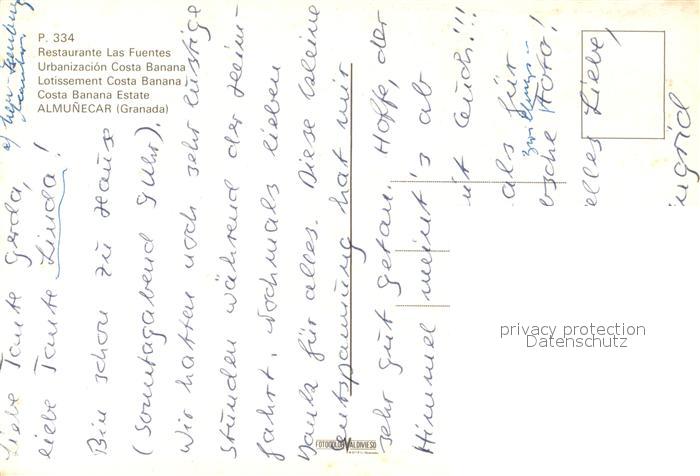 P. 334
Restaurante Las Fuentes
Urbanización Costa Banana
Lotissement Costa Banana
Costa Banana Estate
ALMUÑECAR (Granada)
Liebe Tante Gerda,
liebe Tante Linda!
Bin schon zu Hause
(Sonntagabend 9 Uhr).
Wir hatten noch sehr lustige
Stunden während der Heim-
fahrt. Nochmals lieben
Dank für alles. Diese kleine
Entspannung hat mir
sehr gut getan. Hoffe, der
Himmel meint's ab
it Euch!!!
als für
ösche Foto!
elles Liebe,
ngrid
FOTOCOLOR VALDIVIESO
privacy protection
Datenschutz